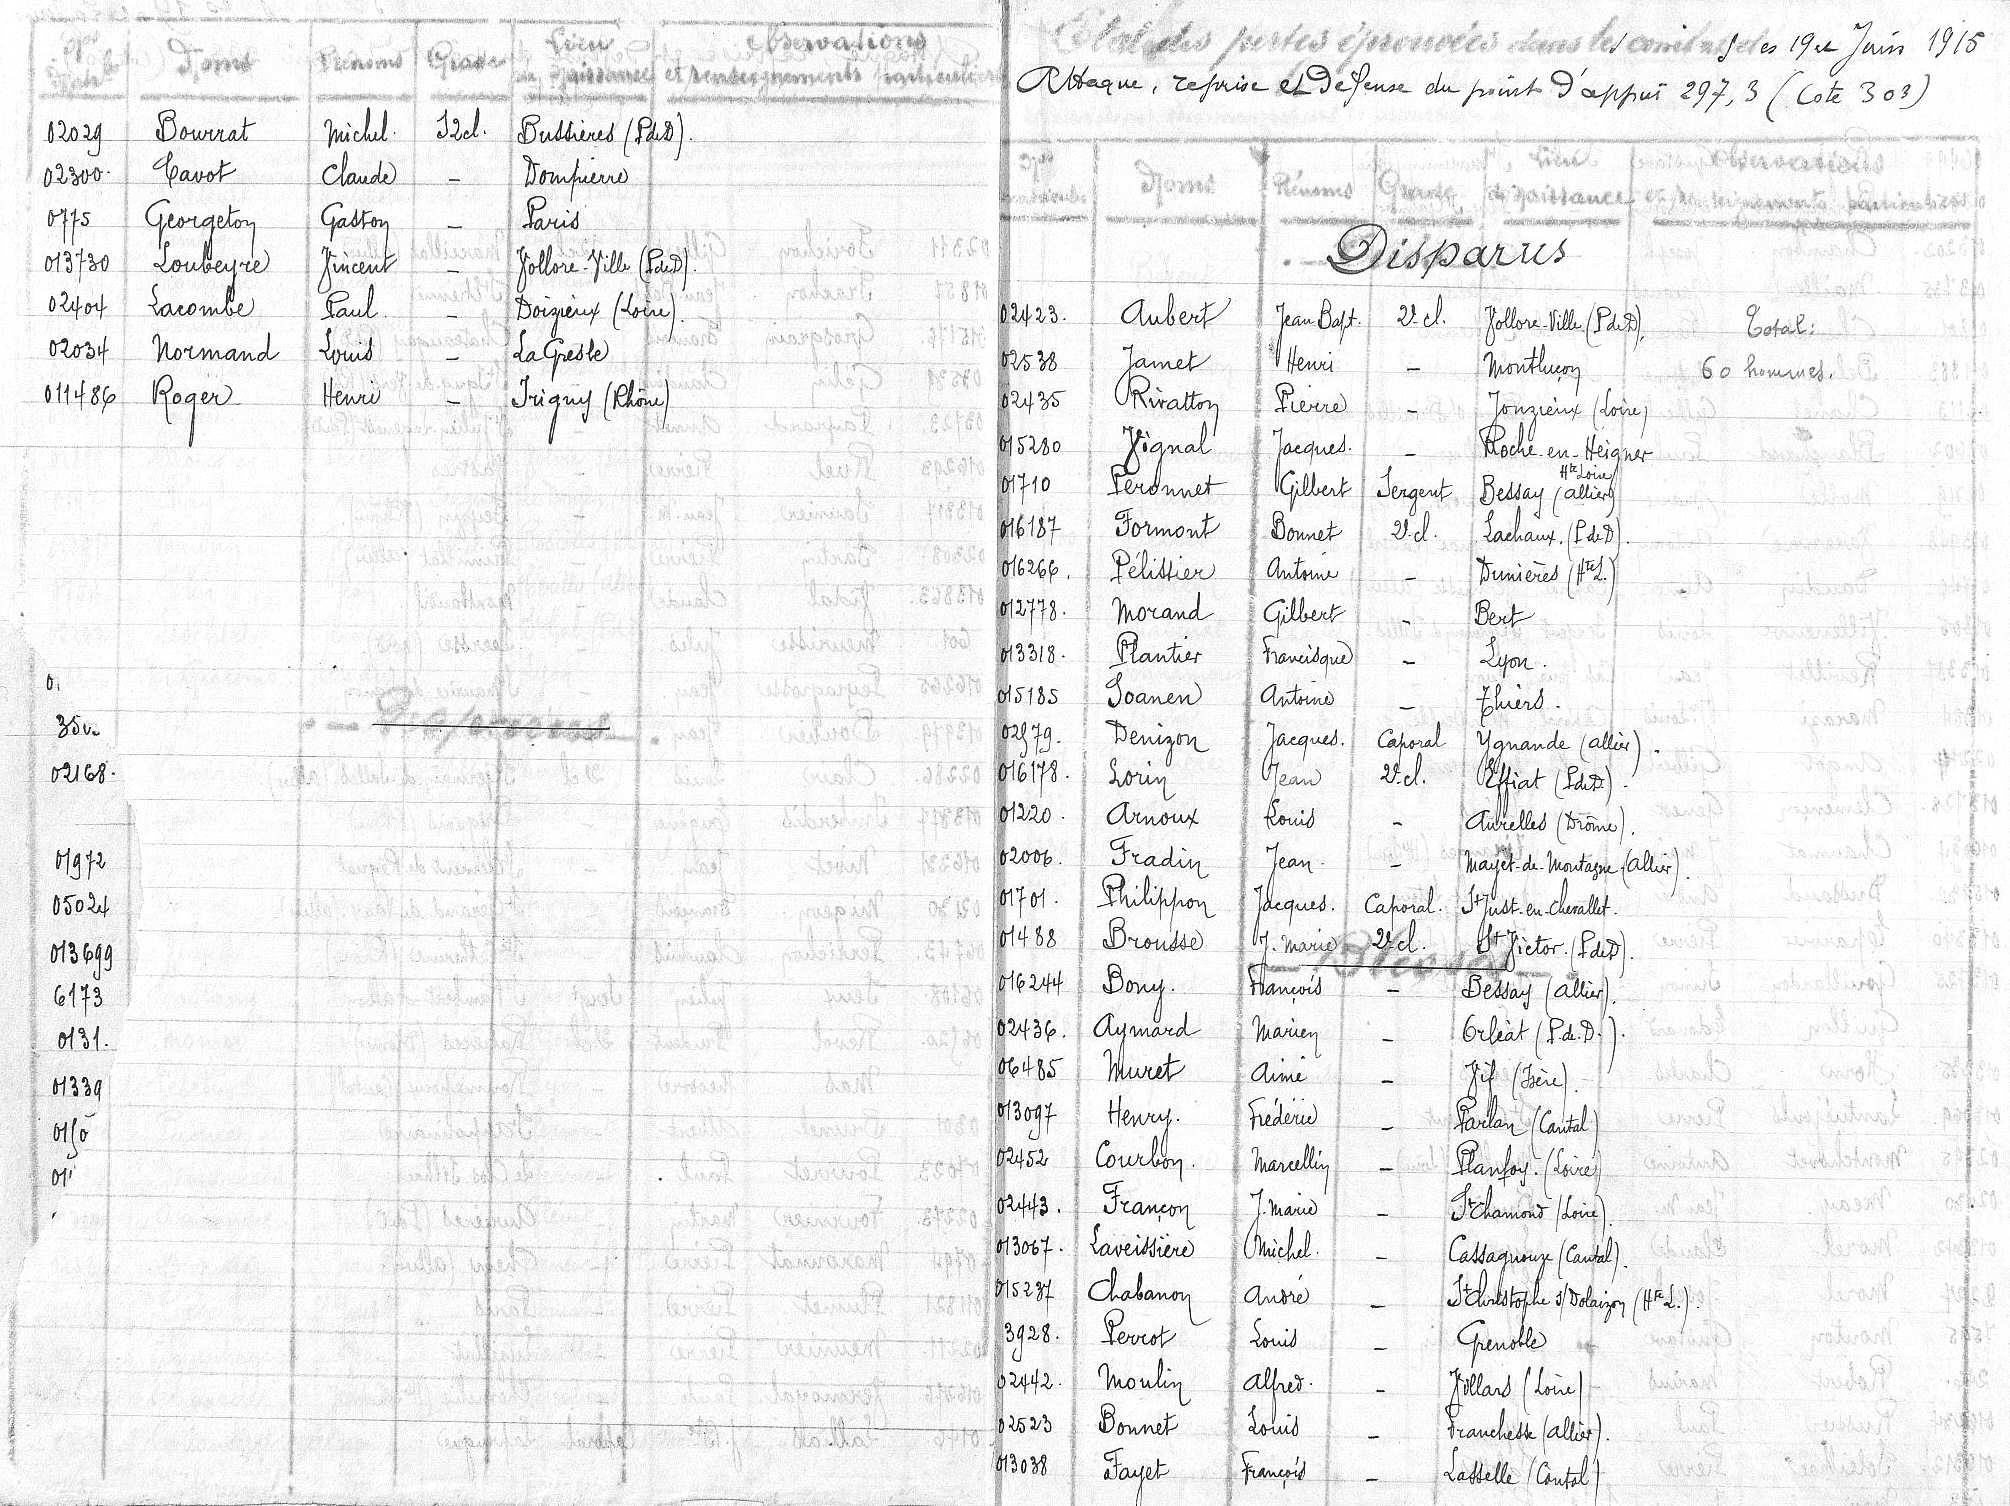 Nos Mtle Noms Prénoms Grade Lieu de Naissance Observations et renseignements particuliers
02029 Bourrat Michel. S2cl. Bussières (P.de.D).
02300. Cavot Claude - Dompierre
0775 Georgeton Gaston - Paris
013730 Loubeyre Vincent - Vollore-Ville (P.deD).
02404 Lacombe Paul - Doizieux (Loire).
02034 Normand Louis - La Gresle
011486 Roger Henri - Irigny (Rhône)
0.
350.
02168.
01972
05024
013699
6173
0131.
01339
0150
01
Etat des pertes éprouvées dans les combats des 19 et Juin 1915
Attaque, reprise et Défense du point d'appui 297,3 (Cote 303)
Noms Prénoms Grade Lieu de Naissance Observations et renseignements particuliers
Disparus
02423. Aubert Jean Bapt. 2e cl. Vollore-Ville (P.deD). Total:
02538 Jamet Henri - Montluçon 60 hommes.
02435 Rivatton Pierre - Jonzieux (Loire)
015280 Vignal Jacques. - Roche-en-Reigner Hte Loire
01710 Peronnet Gilbert Sergent Bessay (Allier)
016187 Formont Bonnet 2e cl. Lachaux. (P.deD).
016266. Pélissier Antoine - Dunières (Hte L.)
012778. Morand Gilbert - Bert
013318. Plantier Francisque - Lyon.
015185 Joanen Antoine - Thiers.
02979. Denizon Jacques. Caporal Ygrande (Allier).
016178. Lorin Jean 2e cl. Effiat (P.deD).
01220. Arnoux Louis - Aurelles (Drôme).
02006. Fradin Jean. - Mayet-de-Montagne (Allier).
01701. Philippon Jacques. Caporal. St Just-en-Chevallet.
01488 Brousse J. Marie 2e cl. St Victor. (P.deD).
016244 Bony. François - Bessay (Allier).
02436. Aymard Marien - Orléat (P.de.D.).
06485 Muret Aimé - Vif (Isère).
013097 Henry. Frédéric - Parlan (Cantal)
02452 Courbon. Marcellin - Planfoy. (Loire)
02443. Françon J. Marie - St Chamond (Loire).
013067. Laveissière Michel. - Cassagnouze (Cantal).
015237 Chabanon André - St Christophe s/Dolaizon (Hte L.).
3928. Perrot Louis - Grenoble
02442. Moulin Alfred. - Villars (Loire)
02523 Bonnet Louis - Franchesse (Allier).
013038 Fayet François - Lasselle (Cantal)